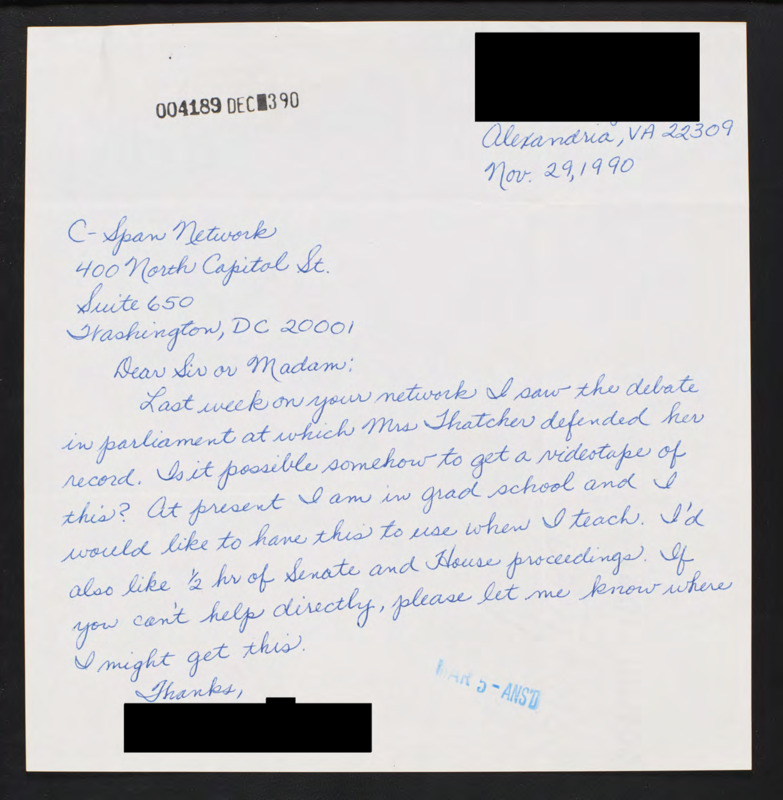 004189 DEC 3 90
Alexandria, VA 22309
Nov. 29, 1990
C-Span Network
400 North Capital St.
Suite 650
Washington, DC 20001
Dear Sir or Madam:
Last week on your network I saw the debate
in parliament at which Mrs Thatcher defended her
record. Is it possible somehow to get a videotape of
this? At present I am in grad school and I
would like to have this to use when I teach. I'd
also like ½ hr of Senate and House proceedings. If
you can't help directly, please let me know where
I might get this.
Thanks,
MAR 5 - ANS'D